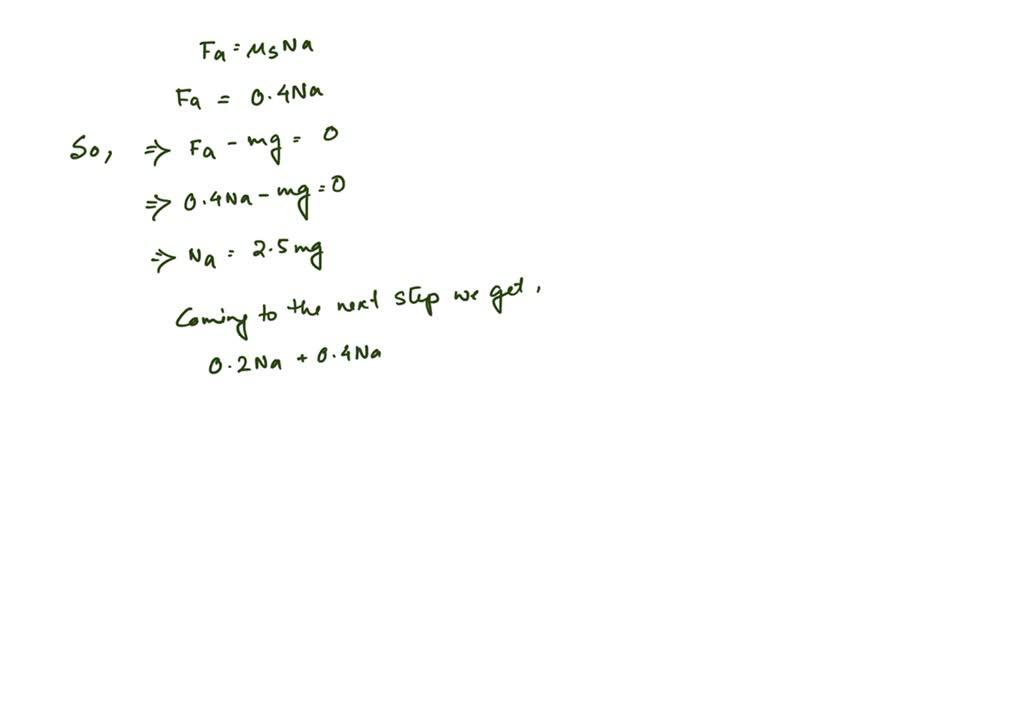 Fa = μsNa
Fa = 0.4Na
So, ⇒ Fa - mg = 0
⇒ 0.4Na - mg = 0
⇒ Na = 2.5mg
Coming to the next step we get,
0.2Na + 0.4Na